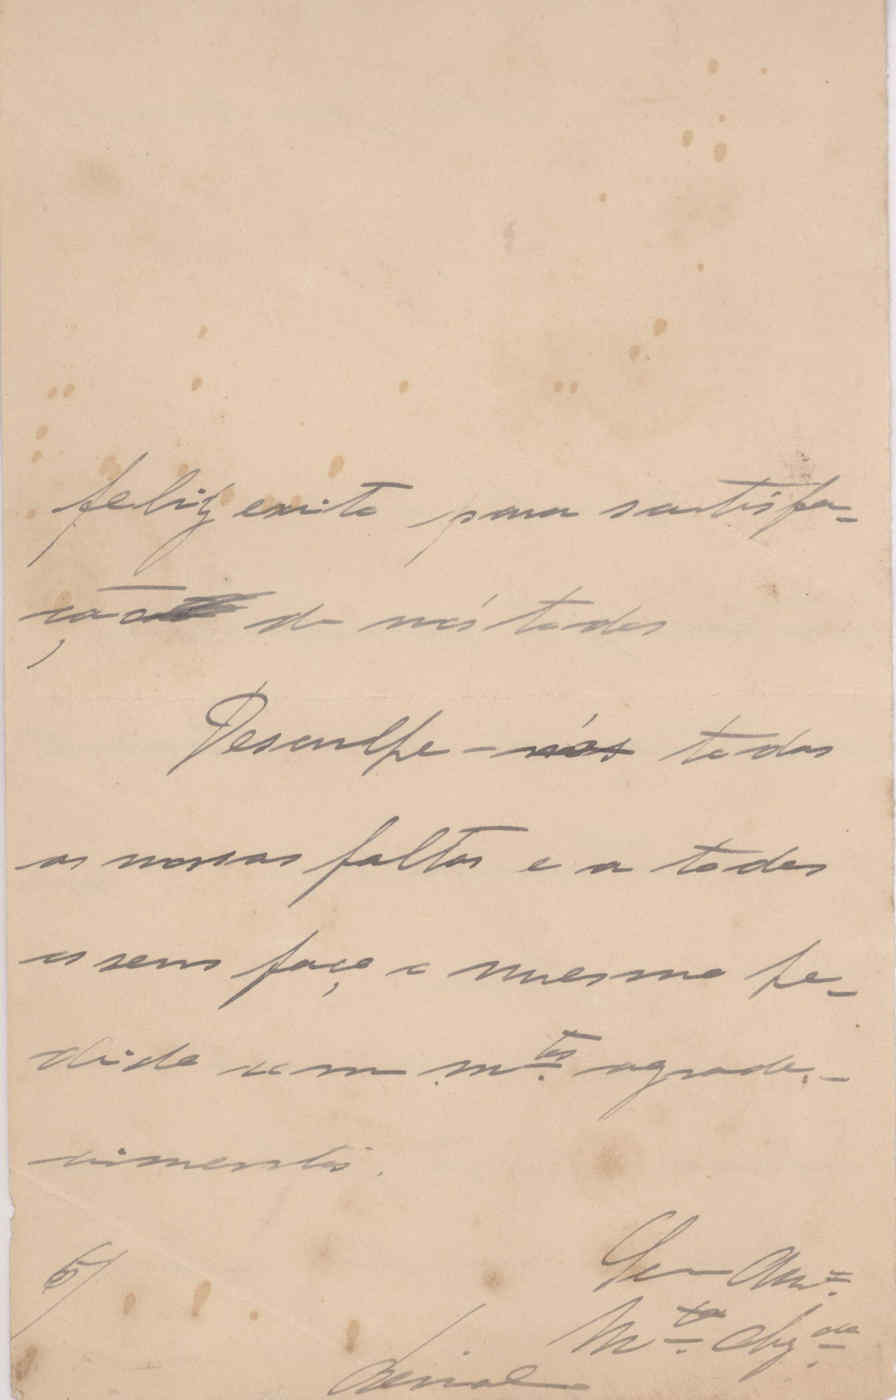 feliz exito para satisfa-
ção de nós todos
Desculpe-nós todas
as nossas faltas e a todos
os seus faço o mesmo pe-
dido com m.tos agrade-
cimentos.
Seu Am.o
5/
M.to Obg.do